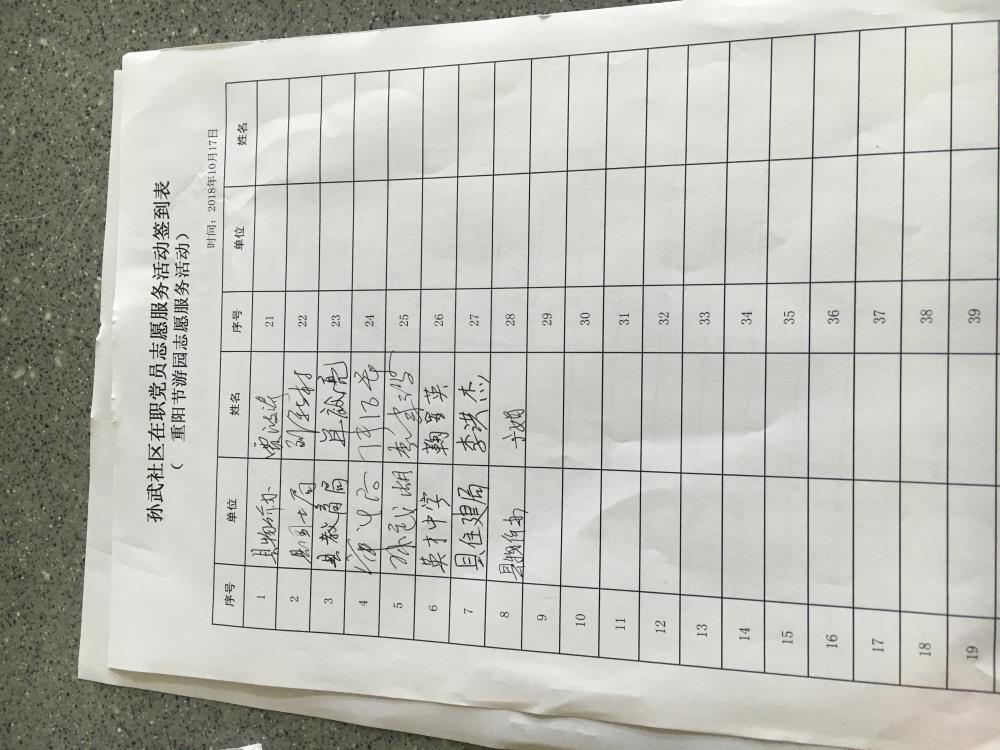 孙武社区在职党员志愿服务活动签到表
（ 重阳节游园志愿服务活动）
时间：2018年10月17日
序号 单位 姓名 序号 单位 姓名
1 县物价办 21
2 22
3 县教育局 23
4 24
5 孙武湖 25
6 英才中学 鞠星英 26
7 县住建局 李洪杰 27
8 县物价办 28
9 29
10 30
11 31
12 32
13 33
14 34
15 35
16 36
17 37
18 38
19 39